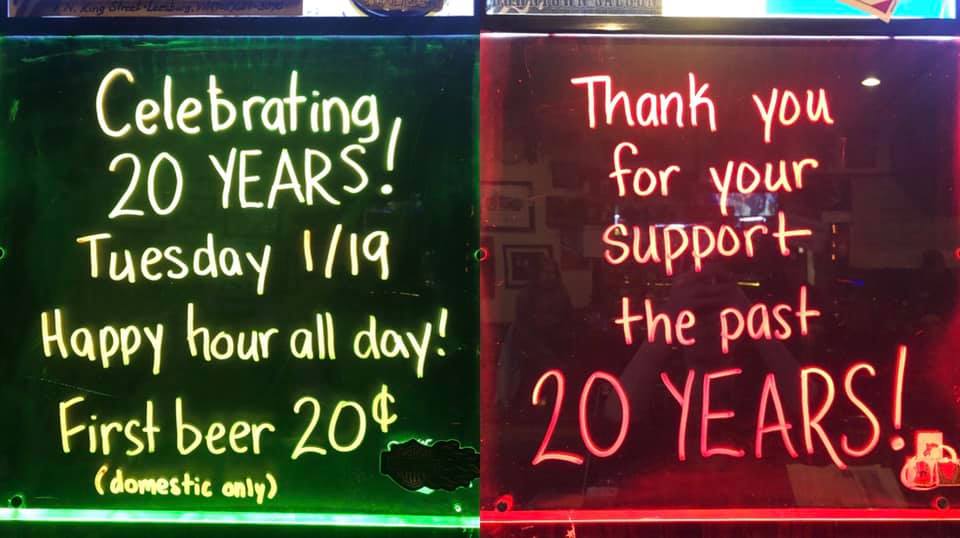 N. King Street • Leesburg, VA
Celebrating
20 YEARS!
Tuesday 1/19
Happy hour all day!
First beer 20¢
(domestic only)
Thank you
for your
support
the past
20 YEARS!